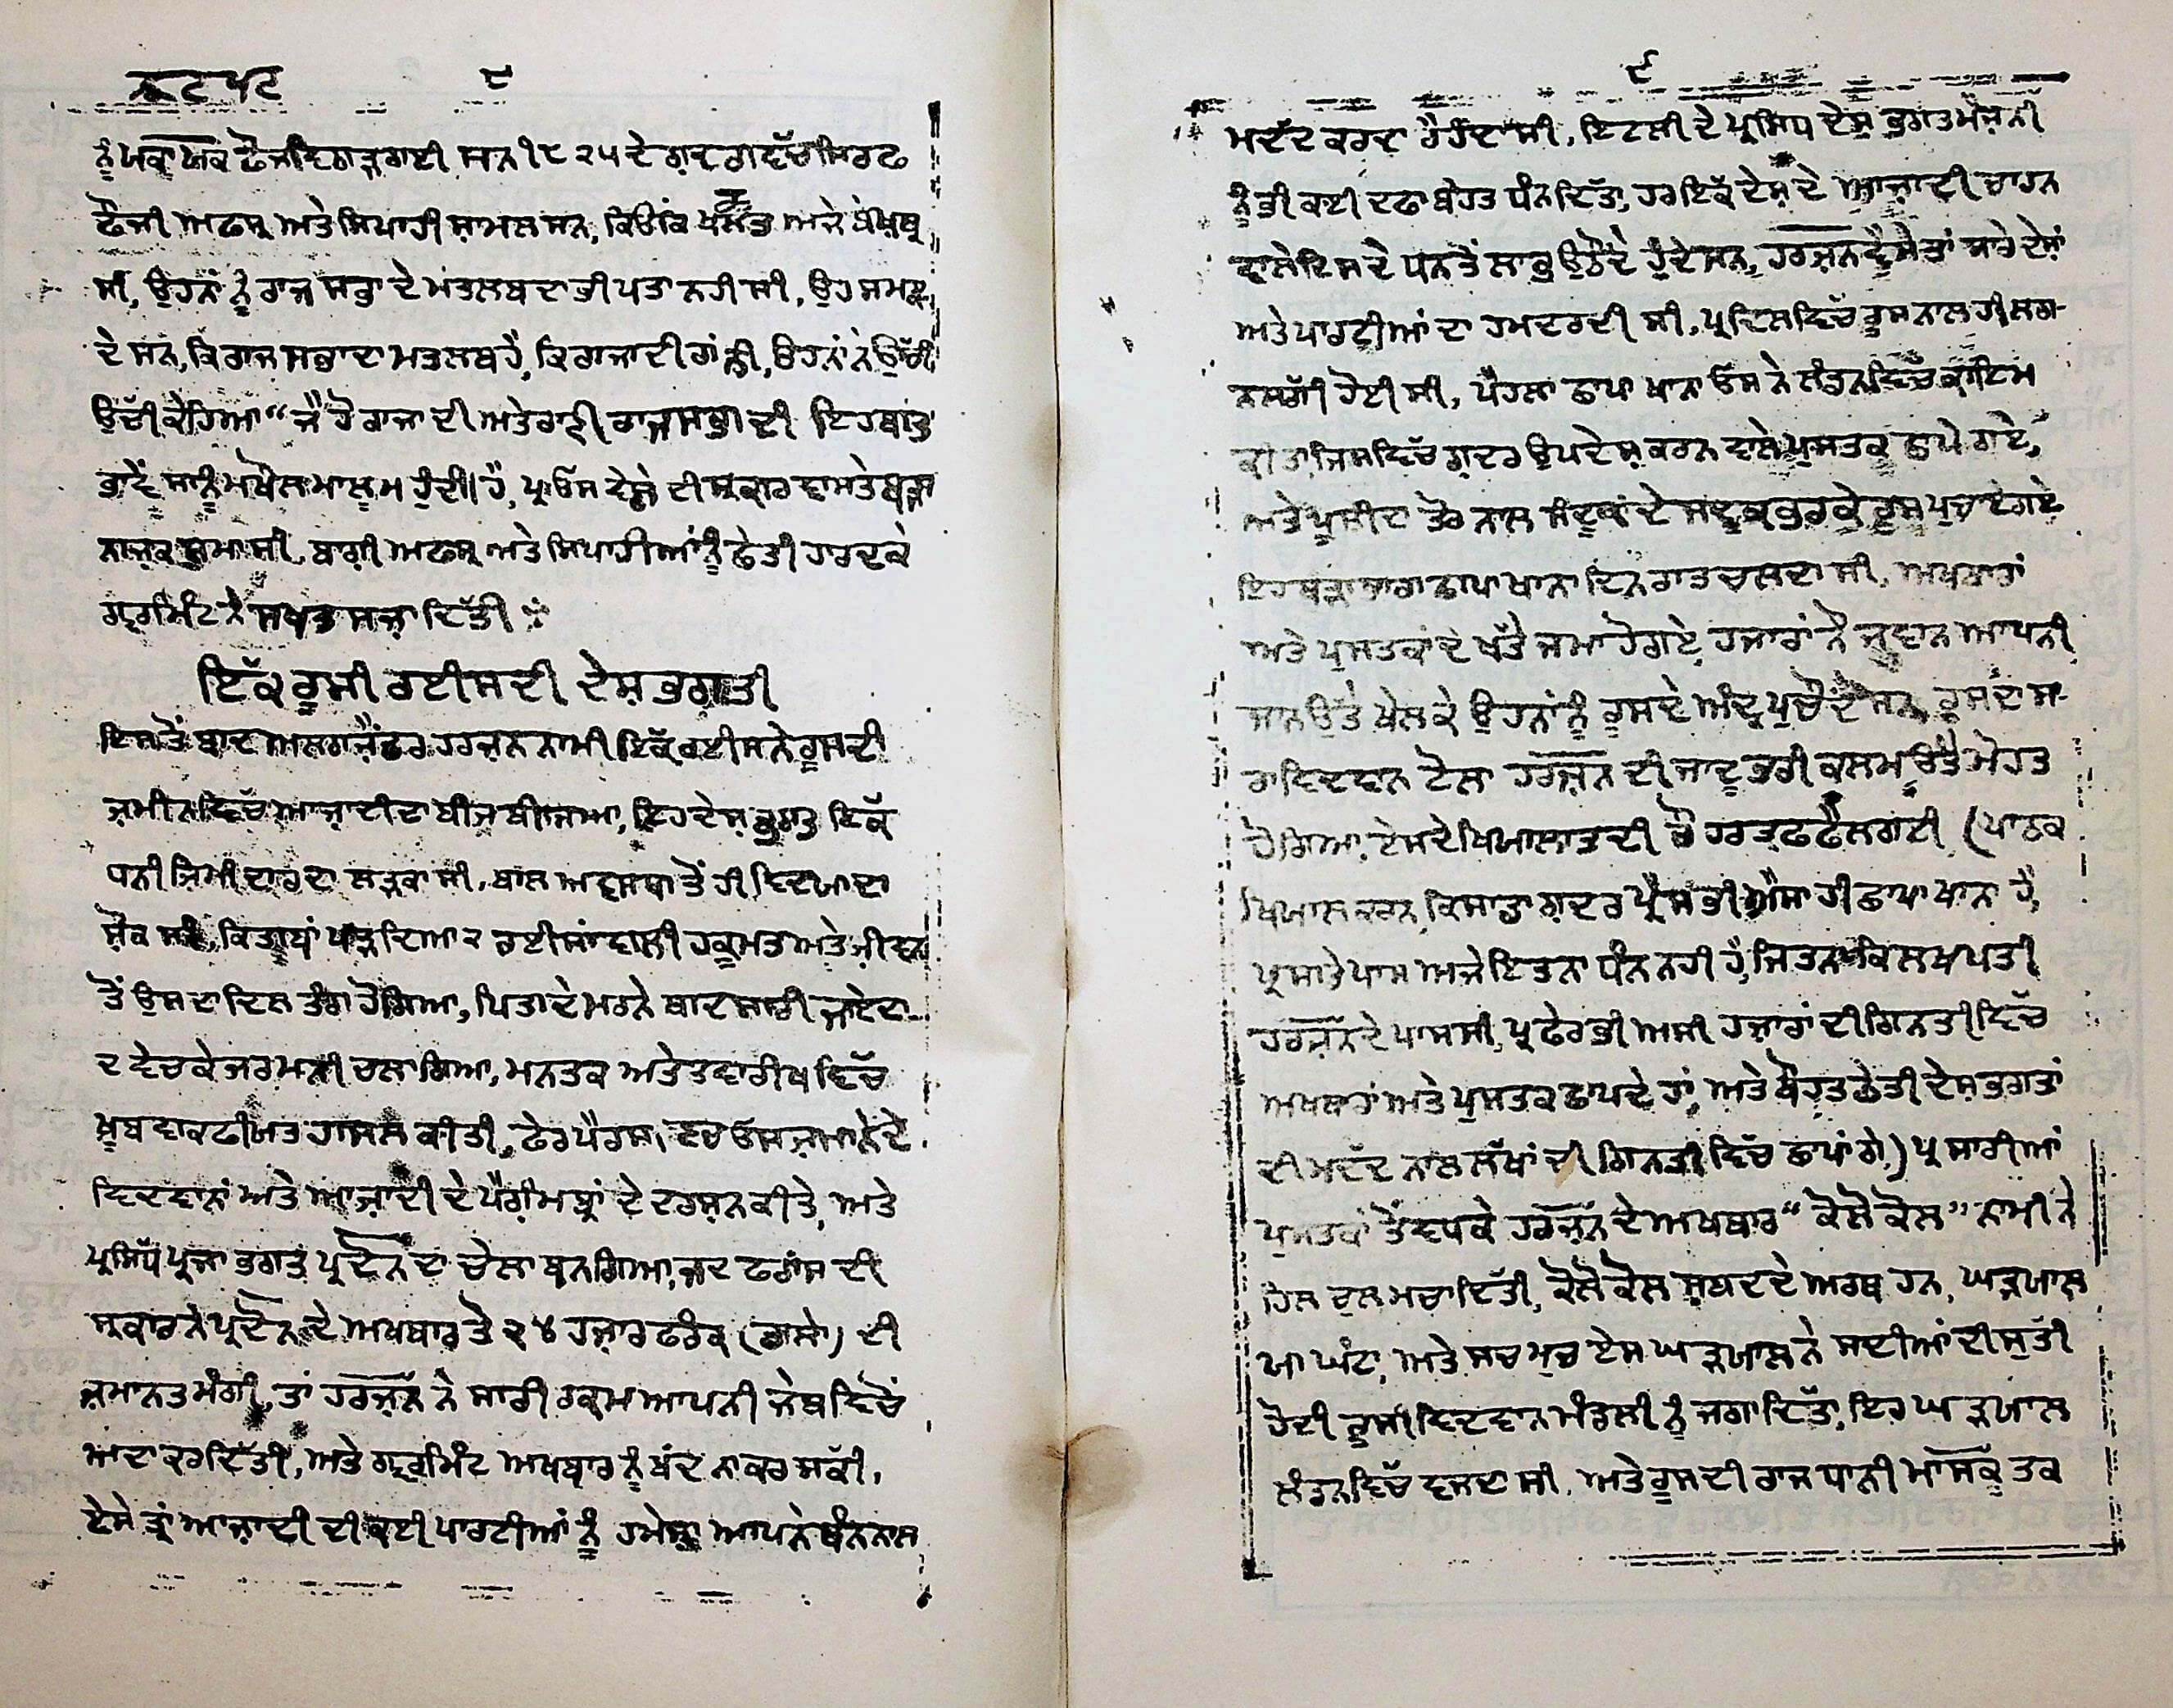 ੮
ਨੂੰ ਖਕਾ ਖਕ ਫੌਜ ਵਿਗੜ ਗਈ ਸਨ ੧੮੨੫ ਦੇ ਗ਼ਦਰ ਵਿੱਚ ਸਿਰਫ
ਫੌਜੀ ਅਫਸ੍ਰ ਅਤੇ ਸਿਪਾਹੀ ਸ਼ਾਮਲ ਸਨ, ਕਿਓਂਕਿ ਖਲਕਤ ਅਜੇ ਬੇਖ਼ਬ੍ਰ
ਸੀ, ਉਹਨਾਂ ਨੂੰ ਰਾਜ ਸਭਾ ਦੇ ਮਤਲਬ ਦਾ ਭੀ ਪਤਾ ਨਹੀ ਸੀ, ਉਹ ਸਮਝ
ਦੇ ਸਨ, ਕਿ ਰਾਜ ਸਭਾ ਦਾ ਮਤਲਬ ਹੈ, ਕਿ ਰਾਜਾ ਦੀ ਰਾਂਣੀ, ਉਹਨਾਂ ਨੇ ਉੱਚੀ
ਉਚੀ ਕੈਹਿਆ “ਜੈ ਹੋ ਰਾਜਾ ਦੀ ਅਤੇ ਰਾਣੀ ਰਾਜਸਭਾ ਦੀ ਇਹ ਬਾਤ
ਭਾਵੇਂ ਸਾਨੂੰ ਮਖੌਲ ਮਾਲੂਮ ਹੁੰਦੀ ਹੈ, ਪ੍ਰ ਓਸ ਵੇਲੇ ਦੀ ਸ੍ਰਕਾਰ ਵਾਸਤੇ ਬੜਾ
ਨਾਜ਼ਕ ਸਮਾ ਸੀ, ਬਾਗ਼ੀ ਅਫਸ੍ਰ ਅਤੇ ਸਿਪਾਹੀਆਂ ਨੂੰ ਛੇਤੀ ਹਾਰ ਦੇਕੇ
ਗ੍ਵਰਮਿੰਟ ਨੇ ਸਖ਼ਤ ਸਜ਼ਾ ਦਿੱਤੀ
ਇੱਕ ਰੂਸੀ ਰਈਸ ਦੀ ਦੇਸ਼ ਭਗਤੀ
ਇਸਤੋਂ ਬਾਦ ਅਲਗਜ਼ੈਂਡਰ ਹਰਜ਼ਨ ਨਾਮੀ ਇੱਕ ਰਈਸ ਨੇ ਰੂਸ ਦੀ
ਜ਼ਮੀਨ ਵਿੱਚ ਆਜ਼ਾਦੀ ਦਾ ਬੀਜ ਬੀਜਿਆ, ਇਹ ਦੇਸ਼ ਭਗਤ ਇੱਕ
ਧਨੀ ਜ਼ਿਮੀਦਾਰ ਦਾ ਲੜਕਾ ਸੀ, ਬਾਲ ਅਵਸਥਾ ਤੋਂ ਹੀ ਵਿਦਯਾ ਦਾ
ਸ਼ੌਕ ਸੀ, ਕਿਤਾਬਾਂ ਪੜ੍ਹਦਿਆ ੨ ਰਈਸਾਂ ਵਾਲੀ ਹਕੂਮਤ ਅਤੇ ਜੀਵਨ
ਤੋਂ ਉਸਦਾ ਦਿਲ ਤੰਗ ਹੋਗਿਆ, ਪਿਤਾ ਦੇ ਮਰਨੇ ਬਾਦ ਸਾਰੀ ਜਾਏਦਾ-
ਦ ਵੇਚਕੇ ਜਰਮਨੀ ਚਲਾ ਗਿਆ, ਮਨਤਕ ਅਤੇ ਤਵਾਰੀਖ਼ ਵਿੱਚ
ਖ਼ੂਬ ਵਾਕਫੀਯਤ ਹਾਸਲ ਕੀਤੀ, ਫੇਰ ਪੈਰਸ ਵਿਚ ਓਸ ਜ਼ਮਾਨੇ ਦੇ
ਵਿਦਵਾਨਾਂ ਅਤੇ ਆਜ਼ਾਦੀ ਦੇ ਪੈਗ਼ੰਮਬ੍ਰਾਂ ਦੇ ਦਰਸ਼ਨ ਕੀਤੇ, ਅਤੇ
ਪ੍ਰਸਿੱਧ ਪ੍ਰਜਾ ਭਗਤ ਪ੍ਰਦੋਨ ਦਾ ਚੇਲਾ ਬਨਗਿਆ, ਜਦ ਫਰਾਂਸ ਦੀ
ਸ੍ਰਕਾਰ ਨੇ ਪ੍ਰਦੋਨ ਦੇ ਅਖਬਾਰ ਤੋ ੨੪ ਹਜ਼ਾਰ ਫਰੰਕ () ਦੀ
ਜ਼ਮਾਨਤ ਮੰਗੀ, ਤਾਂ ਹਰਜ਼ਨ ਨੇ ਸਾਰੀ ਰਕਮ ਆਪਨੀ ਜੇਬ ਵਿਚੋਂ
ਅਦਾ ਕਰ ਦਿੱਤੀ, ਅਤੇ ਗ੍ਵਰਮਿੰਟ ਅਖਬਾਰ ਨੂੰ ਬੰਦ ਨਾ ਕਰ ਸੱਕੀ,
ਏਸੇ ਤ੍ਰਾਂ ਆਜ਼ਾਦੀ ਦੀ ਕਈ ਪਾਰਟੀਆਂ ਨੂੰ ਹਮੇਸ਼ਾ ਆਪਨੇ ਧੰਨ ਨਾਲ
੯
ਮਦੱਦ ਕਰਦਾ ਰੈਹਂਦਾ ਸੀ, ਇਟਲੀ ਦੇ ਪ੍ਰਸਿਧ ਦੇਸ਼ ਭਗਤ ਮੈਜ਼ਨੀ
ਨੂੰ ਭੀ ਕਈ ਦਫਾ ਬੋਹਤ ਧੰਨ ਦਿੱਤਾ, ਹਰ ਇਕੱ ਦੇਸ਼ ਦੇ ਆਜ਼ਾਦੀ ਚਾਹਨ
ਵਾਲੇ ਇਸ ਦੇ ਧਨ ਤੋਂ ਲਾਭ ਉਠੌਂਦੇ ਹੁੰਦੇ ਸਨ, ਹਰਜ਼ਨ ਵੈਸੇ ਤਾਂ ਸਾਰੇ ਦੇਸ਼ਾਂ
ਅਤੇ ਪਾਰਟੀਆਂ ਦਾ ਹਮਦਰਦੀ ਸੀ, ਪ੍ਰ ਦਿਲ ਵਿਚੱ ਰੂਸ ਨਾਲ ਹੀ ਲਗ-
ਨ ਲੱਗੀ ਹੋਈ ਸੀ, ਪੈਹਲਾ ਛਾਪਾ ਖਾਨਾ ਓਸ ਨੇ ਲੰਡਨ ਵਿੱਚ ਕਾਇਮ
ਕੀਤਾ, ਜਿਸ ਵਿਚੱ ਗ਼ਦਰ ਉਪਦੇਸ਼ ਕਰਨ ਵਾਲੇ ਪੁਸਤਕ ਛਾਪੇ ਗਏ,
ਅਤੇ ਪੁਸ਼ੀਦਾ ਤੌਰ ਨਾਲ ਸੰਦੂਕਾਂ ਦੇ ਸੰਦੂਕ ਭਰਕੇ ਰੂਸ ਪੁਚਾਏਗਏ
ਇਹ ਬੜਾ ਭਾਰਾ ਛਾਪਾ ਖਾਨਾ ਦਿਨ ਰਾਤ ਚਲਦਾ ਸੀ, ਅਖਬਾਰਾਂ
ਅਤੇ ਪੁਸਤਕਾਂ ਦੇ ਖੱਤੇ ਜਮਾ ਹੋਗਏ, ਹਜ਼ਾਰਾਂ ਨੌ ਜੁਵਾਨ ਆਪਨੀ
ਜਾਨ ਉੱਤੇ ਖੇਲਕੇ ਉਹਨਾਂ ਨੂੰ ਰੂਸ ਦੇ ਅੰਦ੍ਰ ਪੁਚੌਂਦੇ ਸਨ, ਰੂਸ ਦਾ ਸਾ-
ਰਾ ਵਿਦਵਾਨ ਟੋਲਾ ਹਰਜ਼ਨ ਦੀ ਜਾਦੂ ਭਰੀ ਕਲਮ ਉਤੇ ਮੋਹਤ
ਹੋਗਿਆ, ਏਸਦੇ ਖਿਯਾਲਾਤ ਦੀ ਲੈਹਰ ਤ੍ਰਫ ਫੈਲਗਈ (ਪਾਠਕ
ਖਿਯਾਲ ਕਰਨ, ਕਿ ਸਾਡਾ ਗ਼ਦਰ ਪ੍ਰੈਸ ਭੀ ਐਸਾ ਹੀ ਛਾਪਾ ਖਾਨਾ ਹੈ,
ਪ੍ਰ ਸਾਡੇ ਪਾਸ ਅਜੇ ਇਤਨਾ ਧੰਨ ਨਹੀ ਹੈ, ਜਿਤਨਾ ਕਿ ਲਖਪਤੀ
ਹਰਜ਼ਨ ਦੇ ਪਾਸ ਸੀ, ਪ੍ਰ ਫੇਰ ਭੀ ਅਸੀ ਹਜ਼ਾਰਾਂ ਦੀ ਗਿਨਤੀ ਵਿੱਚ
ਅਖਬਾਰਾਂ ਅਤੇ ਪੁਸਤਕ ਛਾਪਦੇ ਹਾਂ, ਅਤੇ ਬੌਹਤ ਛੇਤੀ ਦੇਸ਼ ਭਗਤਾਂ
ਦੀ ਮਦੱਦ ਨਾਲ ਲੱਖਾਂ ਦੀ ਗਿਨਤੀ ਵਿੱਚ ਛਾਪਾਂਗੇ,) ਪ੍ਰ ਸਾਰੀਆਂ
ਪੁਸਤਕਾਂ ਤੋਂ ਵਧਕੇ ਹਰਜ਼ਨ ਦੇ ਅਖਬਾਰ “ਕੋਲੋਕੋਲ” ਨਾਮੀ ਨੇ
ਹਿਲ ਚੁਲ ਮਚਾ ਦਿੱਤੀ, ਕੋਲੋਕੋਲ ਸ਼ਬਦ ਦੇ ਅਰਥ ਹਨ, ਘੜਯਾਲ
ਯਾ ਘੰਟਾ, ਅਤੇ ਸਚ ਮੁਚ ਏਸ ਘੜਯਾਲ ਨੇ ਸਦੀਆਂ ਦੀ ਸੁਤੱੀ
ਹੋਈ ਰੂਸੀ ਵਿਦਵਾਨ ਮੰਡਲੀ ਨੂੰ ਜਗਾ ਦਿੱਤਾ, ਇਹ ਘੜਯਾਲ
ਲੰਡਨ ਵਿਚੱ ਵਜਦਾ ਸੀ, ਅਤੇ ਰੂਸ ਦੀ ਰਾਜਧਾਨੀ ਮਾਸਕੂ ਤਕ